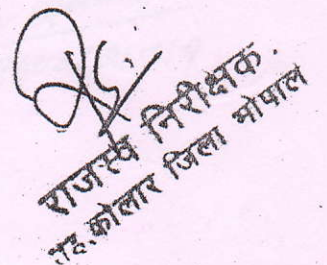 राजस्व निरीक्षक.
तह.कोलार जिला भोपाल